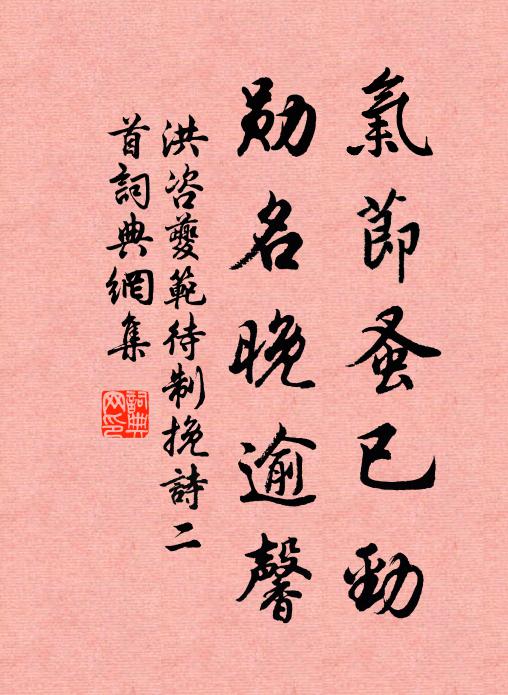 氣節蚤已勁
勛名晚逾馨
洪咨夔範待制挽詩二
首詞典網集
詞典
网印